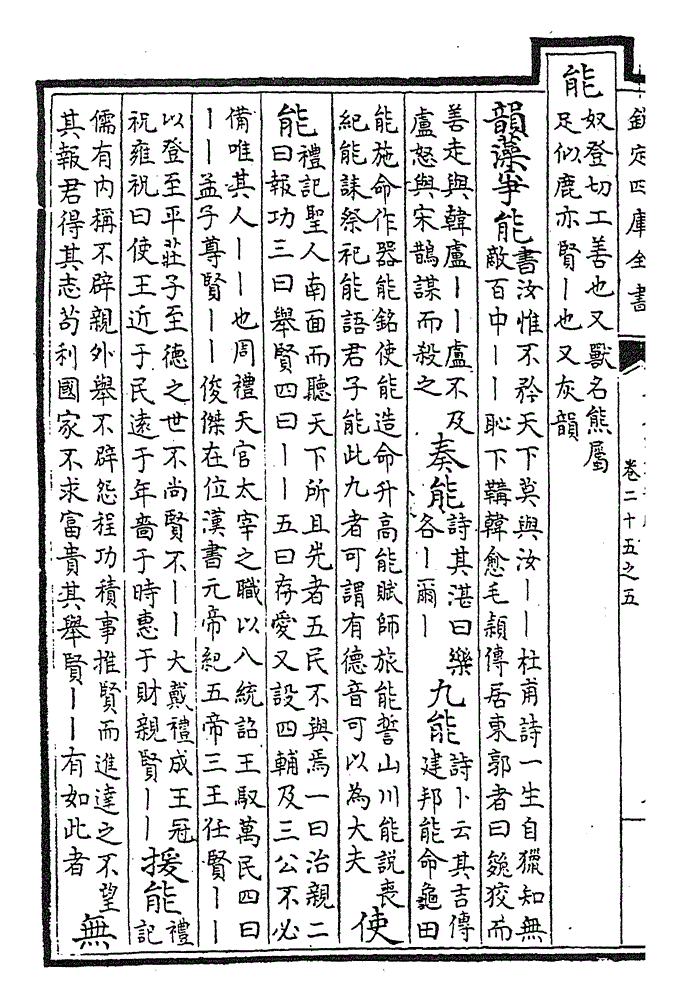 欽定四庫全書
卷二十五之五
能
奴登切工善也又獸名熊屬
足似鹿亦賢丨也又灰韻
韻藻爭能
書汝惟不矜天下莫與汝丨丨杜甫詩一生自獵知無
敵百中丨丨恥下鞲韓愈毛頴傳居東郭者曰㕙狡而
善走與韓盧丨丨盧不及
盧怒與宋鵲謀而殺之
奏能
詩其湛曰樂
各丨爾丨
九能
詩卜云其吉傳
建邦能命龜田
能施命作器能銘使能造命升高能賦師旅能誓山川能說喪
紀能誄祭祀能語君子能此九者可謂有德音可以為大夫
使
能
禮記聖人南面而聽天下所且先者五民不與焉一曰治親二
曰報功三曰舉賢四曰丨丨五曰存愛又設四輔及三公不必
備唯其人丨丨也周禮天官太宰之職以八統詔王馭萬民四曰
丨丨孟子尊賢丨丨俊傑在位漢書元帝紀五帝三王任賢丨丨
以登至平莊子至德之世不尚賢不丨丨大戴禮成王冠
祝雍祝曰使王近于民遠于年嗇于時惠于財親賢丨丨
援能
禮
記
儒有內稱不辟親外舉不辟怨程功積事推賢而進達之不望
其報君得其志茍利國家不求富貴其舉賢丨丨有如此者
無